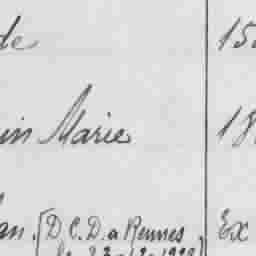 de 15
in Marie 18
an. [D C. D. a Rennes Ex
le 23-12-1922]